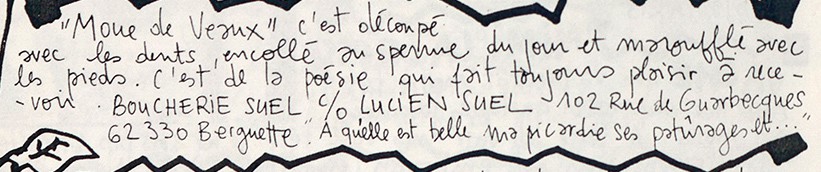 "Moue de Veaux" c'est découpé
avec les dents, encollé au sperme du jour et marouflé avec
les pieds. C'est de la poésie qui fait toujours plaisir à rece-
-voir. BOUCHERIE SUEL c/o LUCIEN SUEL - 102 Rue de Guarbecques
62330 Berguette. "A qu'elle est belle ma picardie ses patûrages et..."